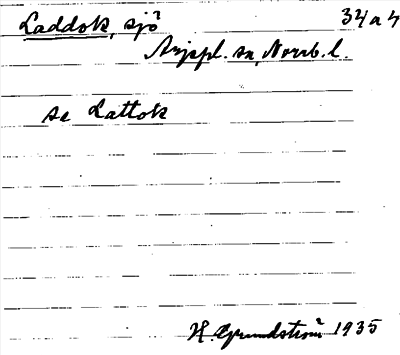 Laddok, sjö 34a4
Arjepl. sn, Norrb. l.
se Lattok
H. Grundström 1935